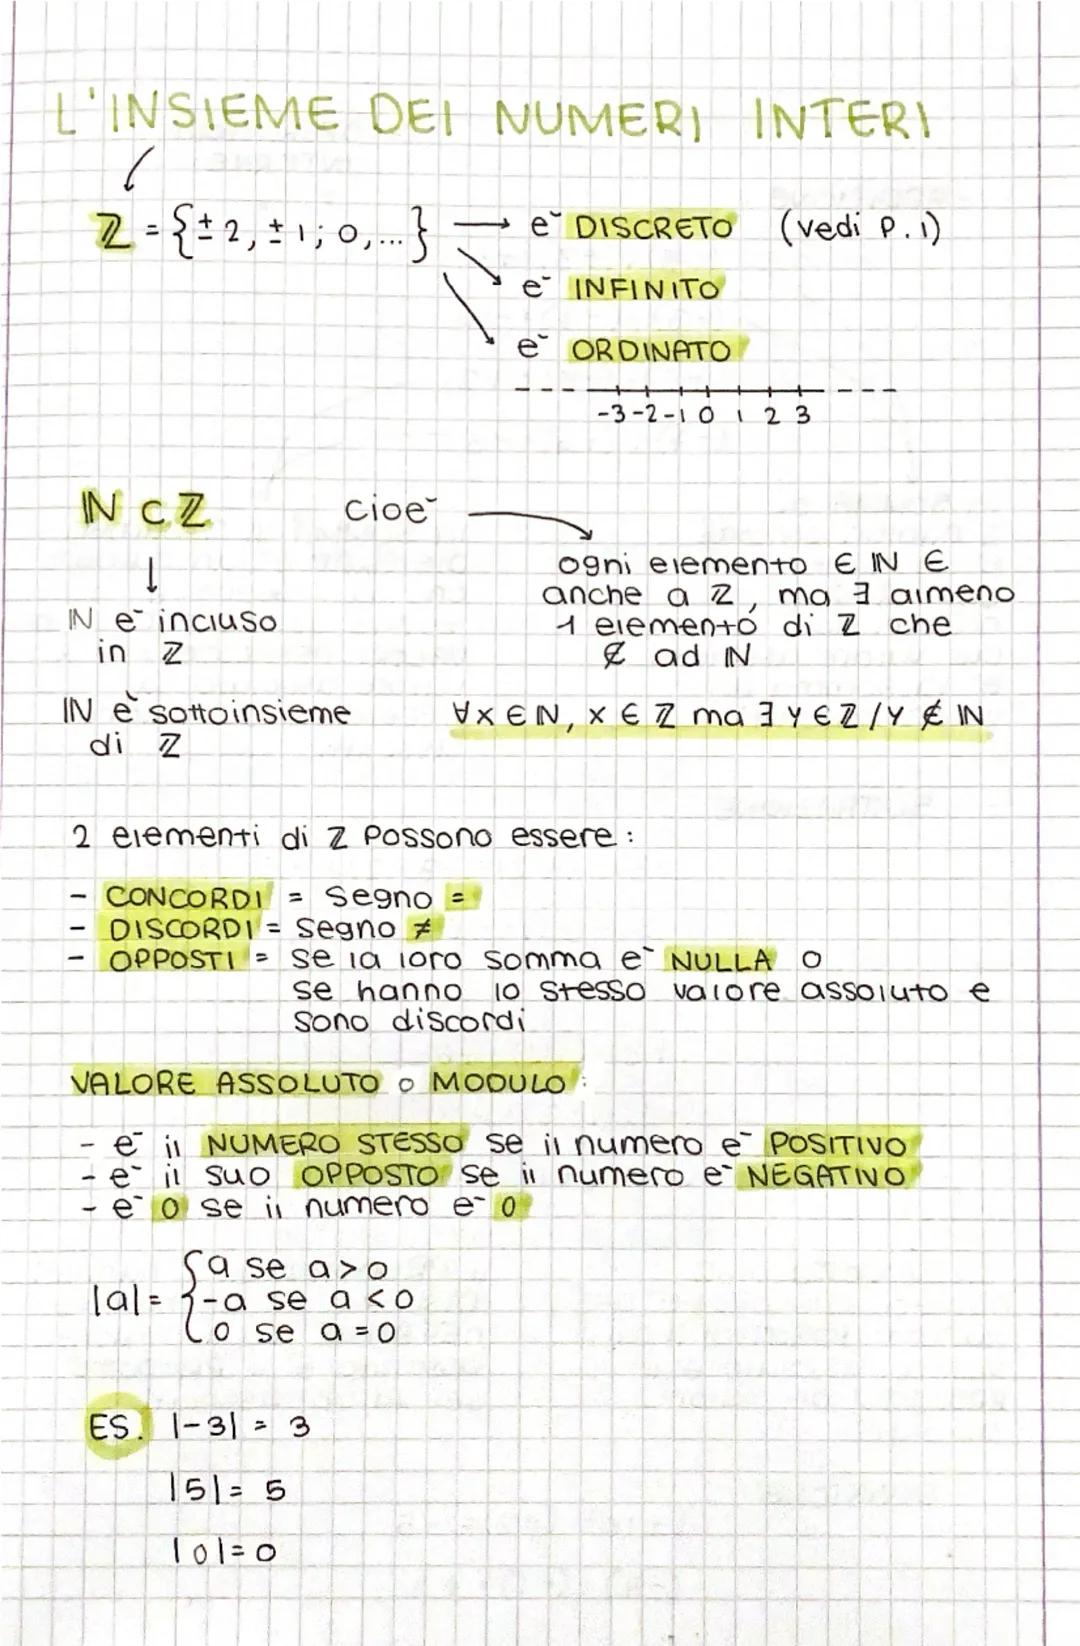 L'INSIEME DEI NUMERI INTERI
ℤ = {± 2, ± 1; 0,...} → è DISCRETO (vedi P. 1)
è INFINITO
è ORDINATO
-3 -2 -1 0 1 2 3
ℕ ⊂ ℤ cioè
ogni elemento ∈ ℕ ∈
anche a ℤ, ma ∃ almeno
1 elemento di ℤ che
∉ ad ℕ
ℕ è incluso
in ℤ
ℕ è sottoinsieme
di ℤ
∀x ∈ ℕ, x ∈ ℤ ma ∃ y ∈ ℤ / y ∉ ℕ
2 elementi di ℤ possono essere:
- CONCORDI = segno =
- DISCORDI = segno ≠
- OPPOSTI = se la loro somma è NULLA o
se hanno lo stesso valore assoluto e
sono discordi
VALORE ASSOLUTO o MODULO:
- è il NUMERO STESSO se il numero è POSITIVO
- è il suo OPPOSTO se il numero è NEGATIVO
- è 0 se il numero è 0
a se a>0
|a| = { -a se a<0
0 se a=0
ES. |-3| = 3
|5| = 5
|0| = 0